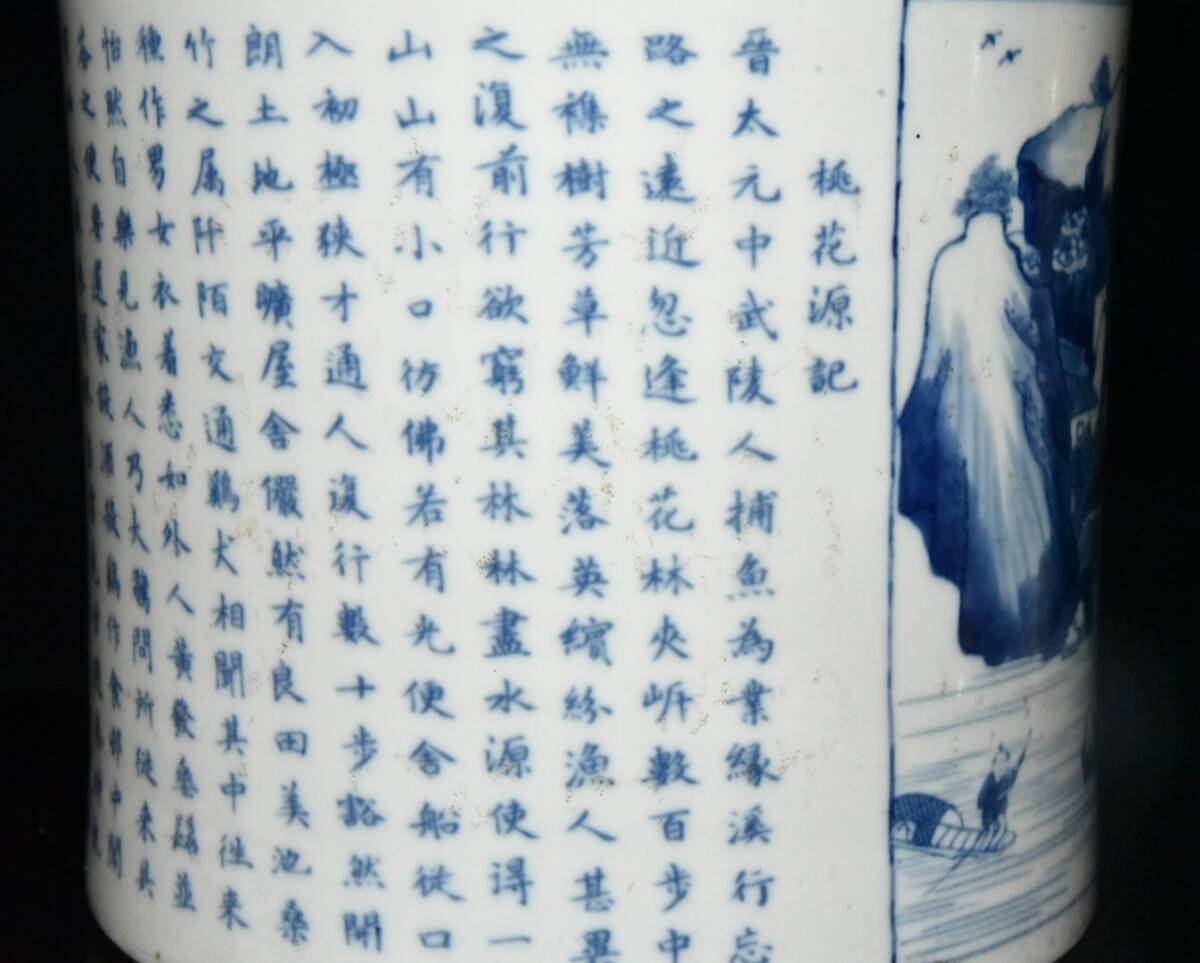 桃花源記
晉太元中武陵人捕魚為業緣溪行忘
路之遠近忽逢桃花林夾岍數百步中
無襍樹芳草鮮美落英繽紛漁人甚異
之復前行欲窮其林林盡水源使得一
山山有小口彷佛若有光便舍船從口
入初極狹才通人復行數十步豁然開
朗土地平曠屋舍儼然有良田美池桑
竹之属阡陌交通鷄犬相聞其中徃來
種作男女衣着悉如外人黄發垂髫並
怡然自樂見漁人乃大驚問所從来具
荅之便要還家設酒殺鷄作食村中聞